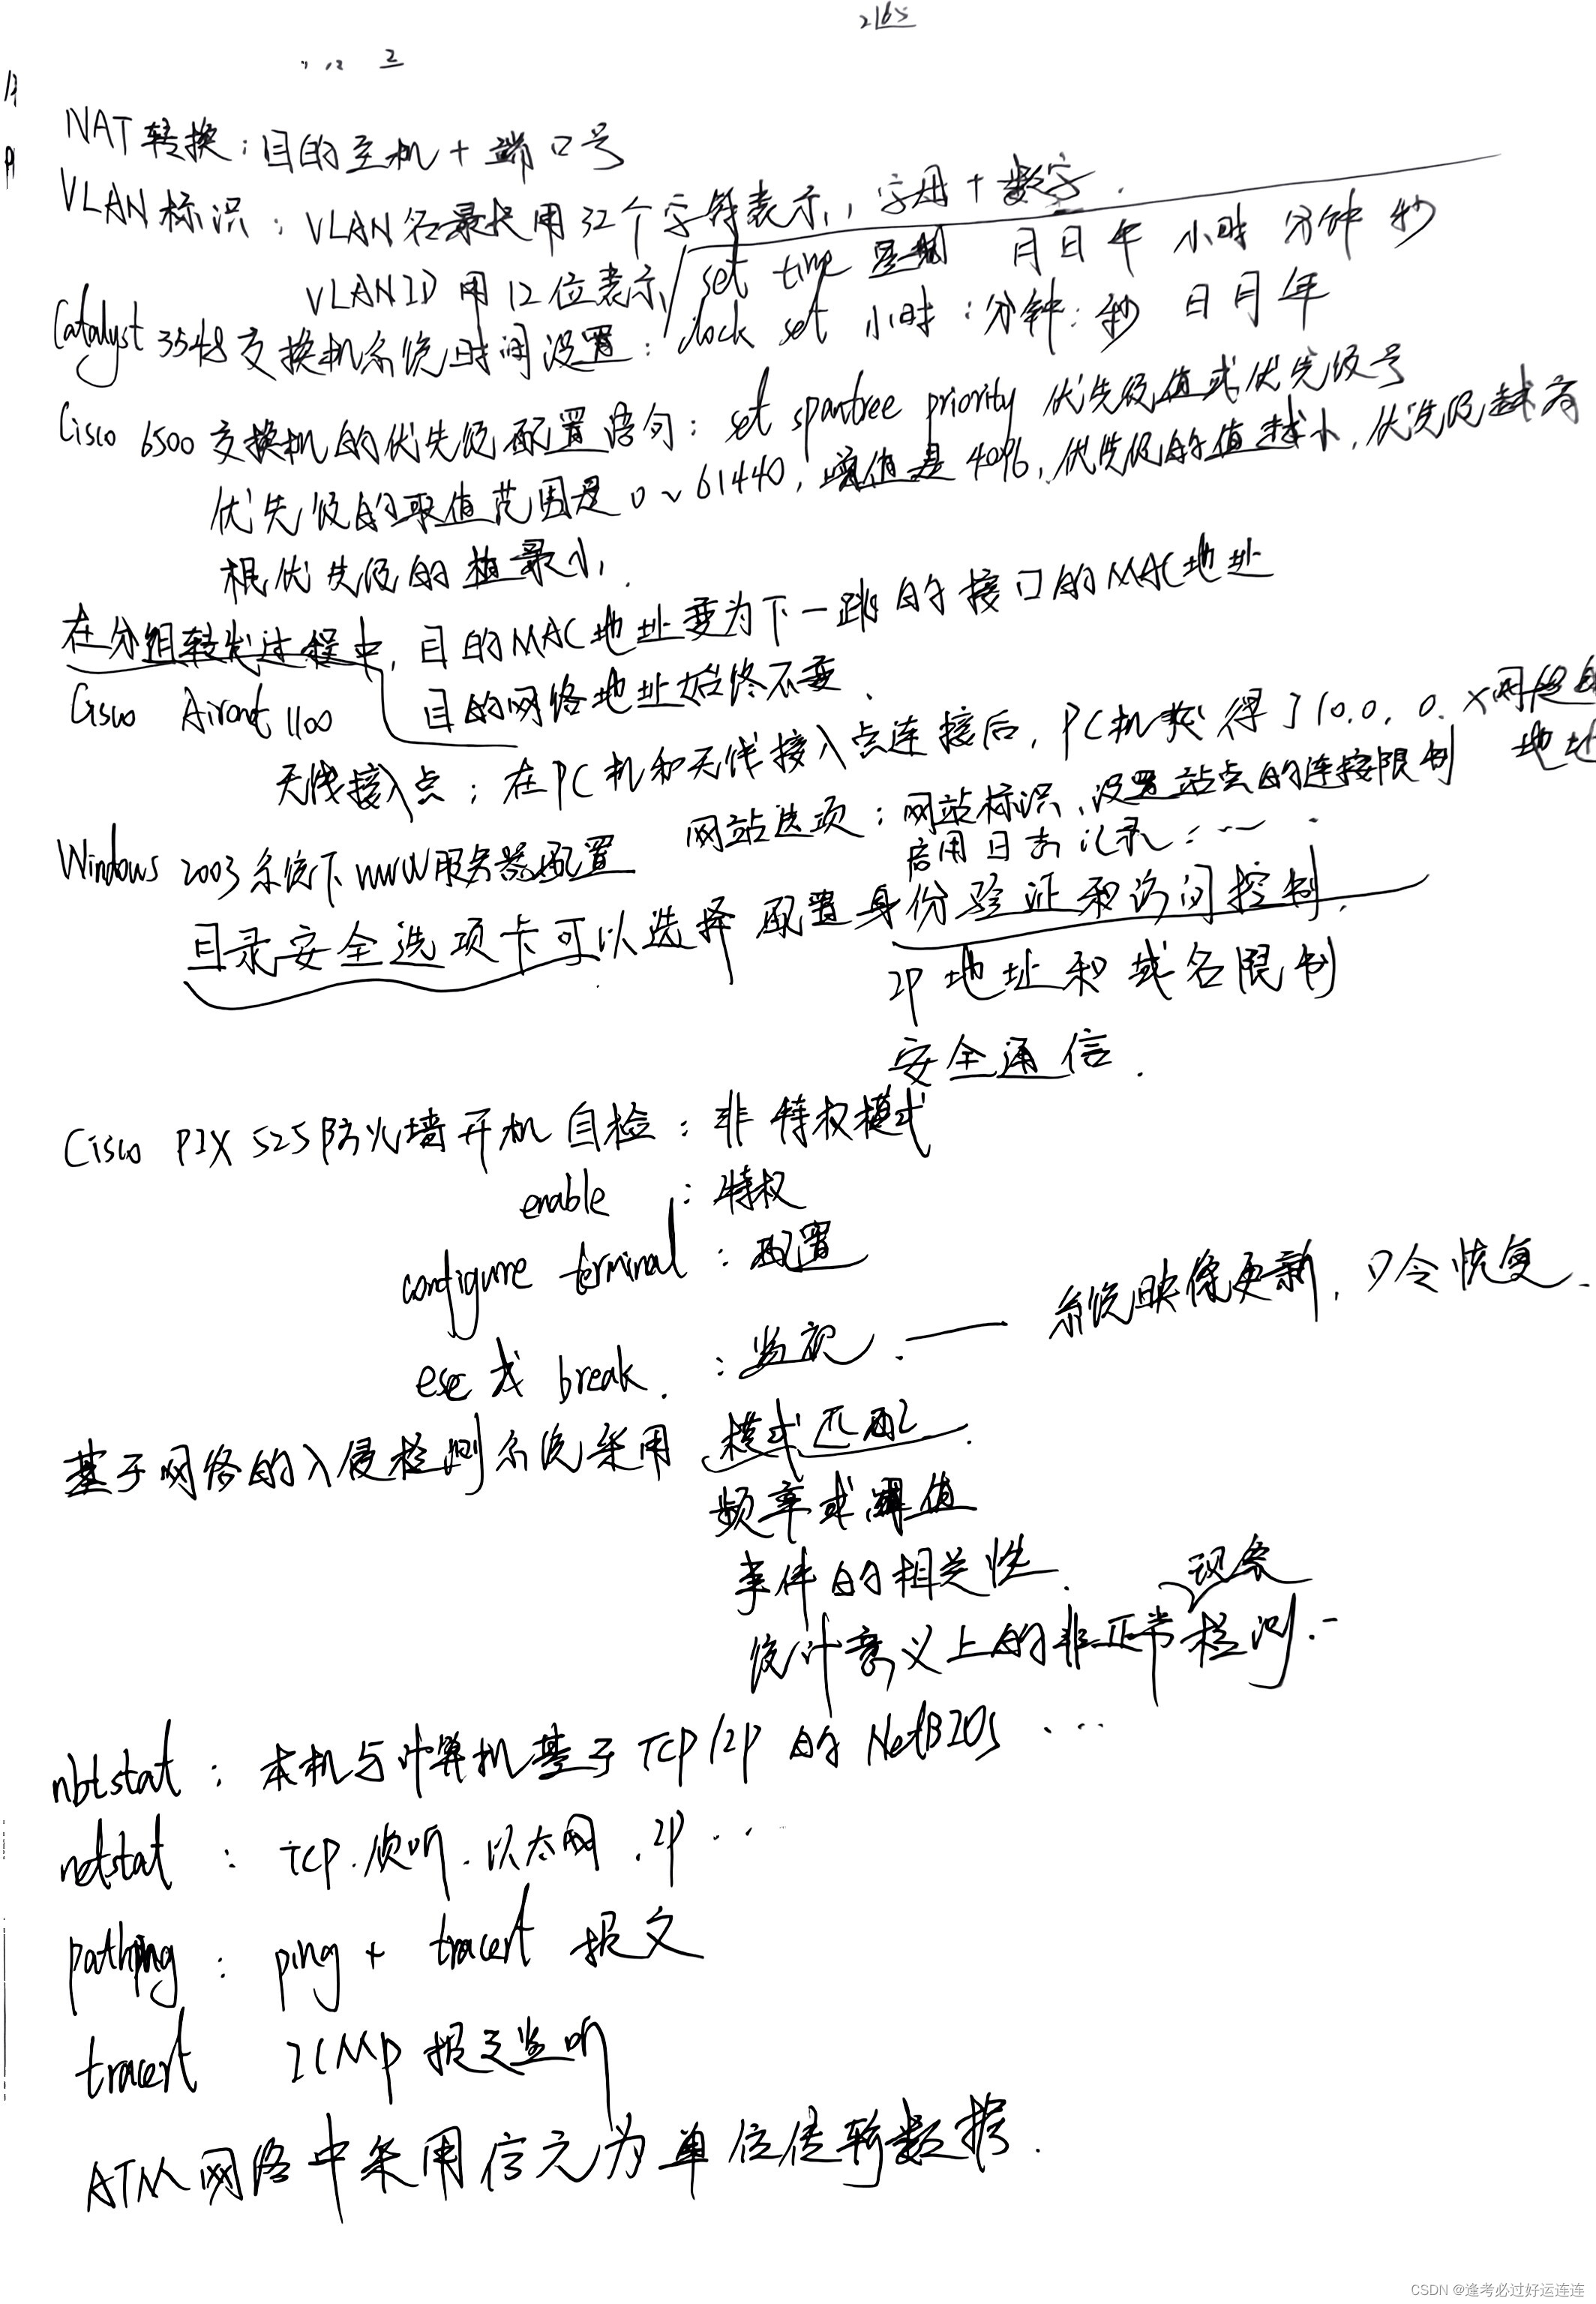 2165
2
NAT转换：目的主机 + 端口号
VLAN标识：VLAN名最长用32个字符表示，字母 + 数字.
VLAN ID 用12位表示
set time 星期 月 日 年 小时 分钟 秒
Catalyst 3548交换机系统时间设置：clock set 小时：分钟：秒 日 月 年
Cisco 6500交换机的优先级配置语句：set spantree priority 优先级值或优先级号
优先级的取值范围是0～61440，增值是4096，优先级的值越小，优先级越高
根优先级的值最小.
在分组转发过程中，目的MAC地址变为下一跳的接口的MAC地址
目的网络地址始终不变.
Cisco Aironet 1100
无线接入点：在PC机和无线接入点连接后，PC机获得了10.0.0.x网段的地址
Windows 2003系统下www服务器配置 网站选项：网站标识，设置站点的连接限制
启用日志记录……
目录安全选项卡可以选择 配置身份验证和访问控制.
IP地址和域名限制
安全通信.
Cisco PIX 525防火墙开机自检：非特权模式
enable ：特权
configure terminal：配置
esc或break. ：监视. —— 系统映像更新，口令恢复.
基于网络的入侵检测系统采用 模式匹配.
频率或阈值
事件的相关性.
现象
统计意义上的非正常检测.
nbtstat：本机与计算机基于TCP/IP的NetBIOS ...
netstat：TCP.侦听.以太网.IP ...
pathping：ping + tracert 报文
tracert ICMP报文监听
ATM网络中采用信元为单位传输数据.
CSDN @逢考必过好运连连